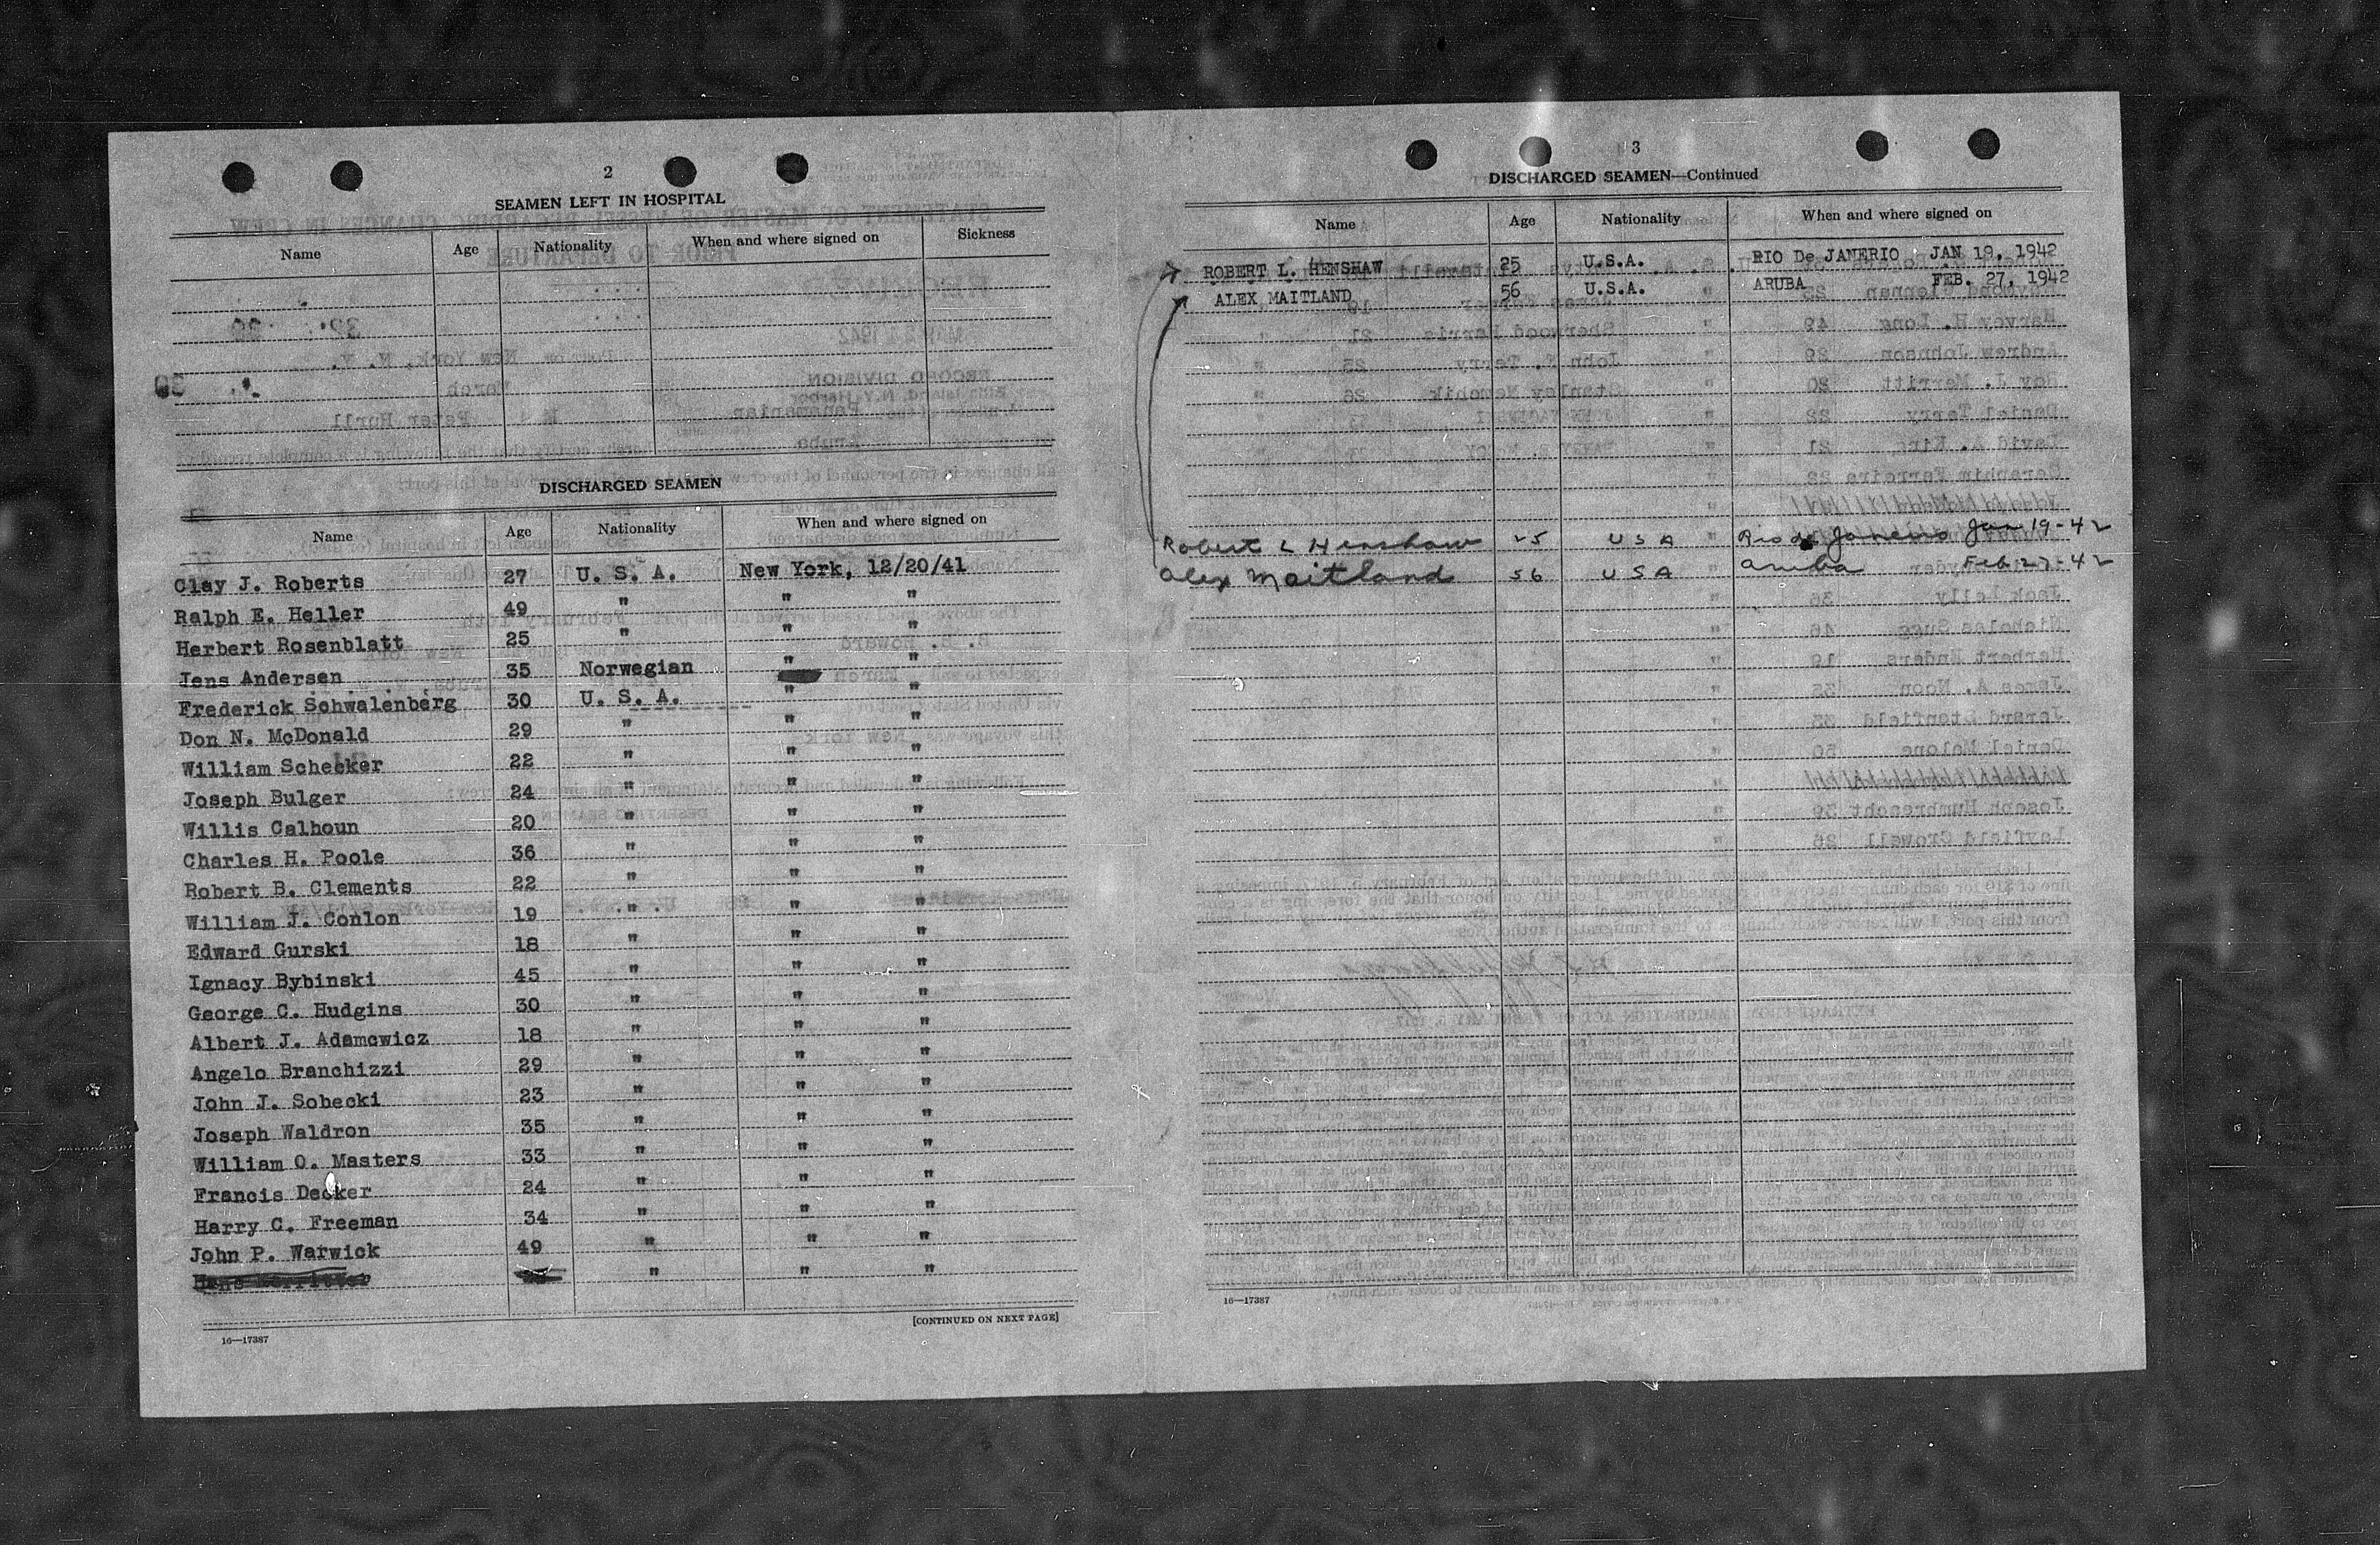 2
SEAMEN LEFT IN HOSPITAL
Name Age Nationality When and where signed on Sickness
DISCHARGED SEAMEN
Name Age Nationality When and where signed on
Clay J. Roberts 27 U. S. A. New York, 12/20/41
Ralph E. Heller 49 " " "
Herbert Rosenblatt 25 " " "
Jens Andersen 35 Norwegian " "
Frederick Schwalenberg 30 U. S. A. " "
Don N. McDonald 29 " " "
William Schecker 22 " " "
Joseph Bulger 24 " " "
Willis Calhoun 20 " " "
Charles H. Poole 36 " " "
Robert B. Clements 22 " " "
William J. Conlon 19 " " "
Edward Gurski 18 " " "
Ignacy Bybinski 45 " " "
George C. Hudgins 30 " " "
Albert J. Adamowicz 18 " " "
Angelo Branchizzi 29 " " "
John J. Sobecki 23 " " "
Joseph Waldron 35 " " "
William O. Masters 33 " " "
Francis Decker 24 " " "
Harry C. Freeman 34 " " "
John P. Warwick 49 " " "
" " "
[CONTINUED ON NEXT PAGE]
16—17387
3
DISCHARGED SEAMEN—Continued
Name Age Nationality When and where signed on
ROBERT L. HENSHAW 25 U.S.A. RIO De JANERIO JAN 19, 1942
ALEX MAITLAND 56 U.S.A. ARUBA FEB. 27, 1942
Robert L Henshaw 25 U S A Rio de Janeiro Jan 19-42
Alex Maitland 56 U S A Aruba Feb 27-42
16—17387